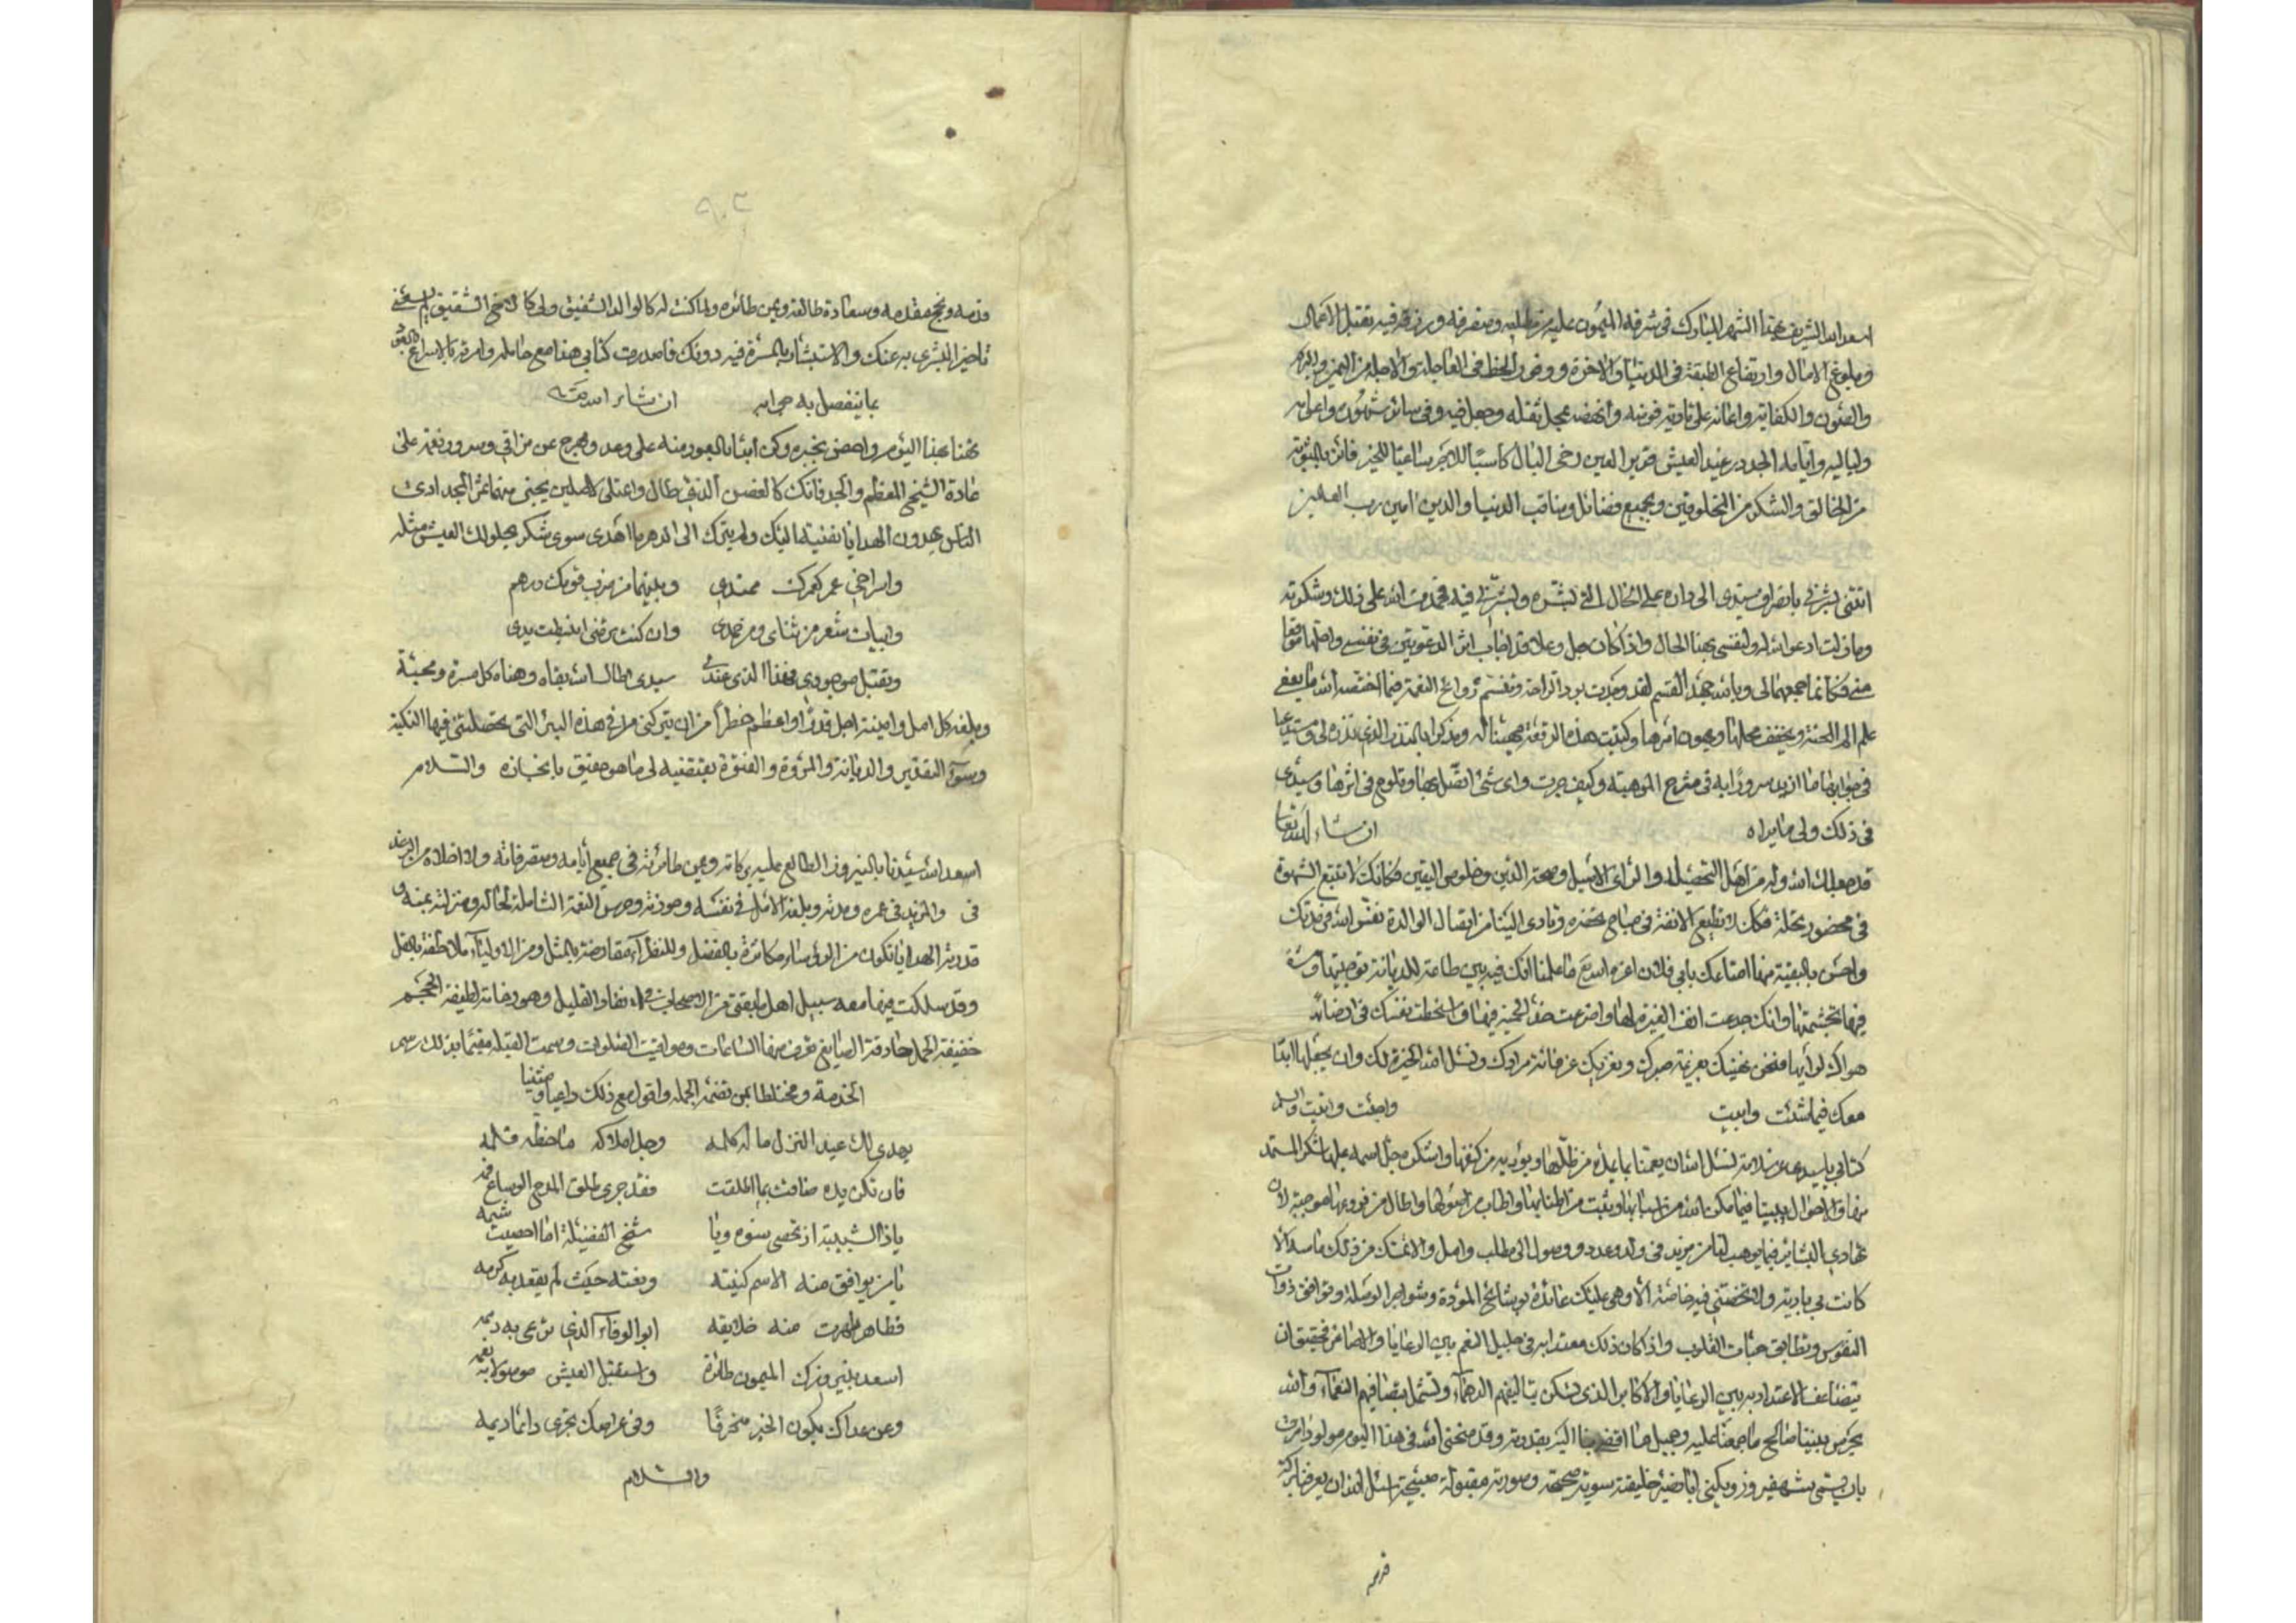 اسعد الله الشريف بهذا الشهر المبارك في شرفه الميمون عليه من مطلبه ومنصرفه ورزقه فيه تقبل الاعمال
وبلوغ الامال وارتفاع الطبقة في الدنيا والاخرة ووفور الحظ في العاجلة والاجلة من
والصون والكفاية واعانه على تادية فرضه وانهضه بحمل ثقله وجعل فيه وفي سائر شهوره واعوامه
ولياليه وايامه الجدد رغيد العيش قرير العين رخي البال كاسبا للاجر ساعيا للخير فائزا بالمثوبة
من الخالق والشكر من المخلوقين وبجميع فضائل ومناقب الدنيا والدين امين رب العالمين
اتتني بانصراف سيدي الى داره على الحال التي تسره وتسرني فيه فحمدت الله على ذلك وشكرته
وما زلت ادعو الله له ولنفسي بهذا الحال واذا كان جل وعلا قد اجاب اثر الدعوتين في نفسي واجلهما موقعا
مني فكانما جمعهما لي وبالله جهد القسم لقد وجدت برد الراحة ونسيم روائح النعمة فيما اختصه الله ما يعفي
على الم المحنة ويخفف محملها ويهون امرها وكتبت هذه الرقعة مهنئا له ومذكرا بالنذر الذي نذره لي ومستدعيا
في جوابها ما ازيد سرورا به في شرح الموهبة وكيف جرت واي شئ اتصل بها وتلوح في اثرها وسيدي
في ذلك ولي ما يراه ان شاء الله تعالى
قد جعلك الله وله من اهل التحصيل والراي الاصيل وصحة الدين وخلوص اليقين فكانك لا تتبع الشهوة
في محضور تحلة فكذلك لا تطيع الانفة في مباح تحضره وتادى الينا من اتصال الوالدة نفس الله في مدتك
واحسن بالبقية منها امتاعك بابي فلان اعزه الله مع ما علمنا انك فيه بين طاعة للديانة توجبها ومشقة
فيها تجشمتها وانك جدعت انف الغيرة لها واضرعت خد الحمية فيها واسخطت نفسك في ارضائها
هواك لرايها فنحن نهنيك بعزيمة صبرك ونعزيك عن فائت مرادك ونسئل الله الخيرة لك وان يجعلها ابدا
معك فيما شئت وابيت واجنت واتيت والسلم
كتابي يا سيدي عن سلامة نسئل الله ان يمتعنا بما يمده من ظلها ويؤويه من كنفها واشكره جل اسمه عليها شكر المستمد
منها والاحوال بيننا فيما مكن الله من اسبابها وثبت من اطنابها واطاب من اصولها واطال من فروعها موجبة لان
نتهادى البشائر فيما يوهب لنا من مزيد في ولد وعدد ووصول الى مطلب وامل والانمسك من ذلك ما سلا الا
كانت بي بادية ولا تخصني فيه خاصة الا وهي عليك عائدة لوشائج المودة وشواجر الوصلة وتوافق ذوات
النفوس وتطابق حبات القلوب واذا كان ذلك معتدا به في جليل النعم بين الرعايا والاصاغر فحقيق ان
يتضاعف الاعتداد به بين الرعايا والاكابر الذي تسكن بتاليفهم الدهماء وتشمل بتصافيهم النعماء والله
يحرس بيننا صالح ما جمعنا عليه وجميل ما افضى بنا اليه بقدرته وقد منحني الله في هذا اليوم مولودا امرت
بان يسمى بشهفيروز ويكنى ابا خليفته سوية صحيحة وصورته مقبولة صبيحة اسئل الله ان يعرفنا بركة
قدمه
قدمه ونجح مقدمه وسعادة طالعه ويمن طائره ولما كنت له كالوالد الشفيق ولي كالاخ الشقيق لم يسعني
تاخير البشرى به عنك والاستبشار بالمسرة فيه دونك فاصدرت كتابي هذا مع حامله وامرته بالاسراع
بما ينفصل به جوابه ان شاء الله تعالى
تهنا بهذا اليوم واحض بخيره وكن ابدا بالعود منه على وعد ولبرح عن مراقي وسرور نعمة على
عادة الشيخ المعظم والجد فانك كالغصن الذي طال واعتلى لاصلين يجنى منهما ثمر المجد ارى
الناس يهدون الهدايا نفيسة اليك ولم يترك الى الدهر ما اهدى سوى شكر يحلو لك العيش مثله
واسراخي عمر كعمرك ممتدي وبينهما من ضرب قومك درهم
وابيات شعر من ثناي ومن حمدي وان كنت ترضى انبسطت يدي
وتقبل موجودي فهذا الذي عندي سيدي اطال الله بقاه وهناه كل مسرة ومحبة
وبلغه كل امل وامنية اجل قدرا واعظم خطرا من ان يتركني في هذه البئر التي حصلتني فيها النكبة
وسوء التقدير والديانة والمروة والفتوة يقتضيه لي ما هو حقيق بانجازه والسلام
اسعد الله سيدنا بالنيروز الطالع عليه بركاته ويمن طائرته في جميع ايامه ومتصرفاته ولا اخلاه من الرغد
في والمزيد في عمره ومدته وبلغه الامل في نفسه وحوزته وحرس النعمة الشاملة لحاله ومنزلته بمنه و
قدرته الهدايا تكون من الرؤساء مكاثرة بالفضل وللنظراء مقارضة بالمثل ومن الاولياء ملاطفة بالقل
وقد سلكت فيها معه سبيل اهل طبقتي من الاصحاب والقليل وهو رخامة لطيفة الحجم
خفيفة الحمل حاذقة الصانع تعرف منها الساعات ومواقيت الصلوات وسمت القبلة مقيما بذلك رسم
الخدمة ومختلطا بمن تضمه الجملة واقول مع ذلك داعيا ومثنيا
يهدي لك عبد النزل ما له كلمه وجل املاكه ما خطه قلمه
فان تكن يده ضاقت بما اطلقت فقد جرى طلق المدح الوساع فمه
ياذا الشبيبة اذ تحصى سنوه ويا شيخ الفضيلة اما احصيت شيمه
يا من يوافق منه الاسم كنيته ونعته حيث لم يقعد به كرمه
فظاهر ظهرت منه خلايقه ابو الوفاء الذي ترعى به ذممه
اسعد بنيروزك الميمون طائره واستقبل العيش موصولا به نعمه
وعن عداك يكون الخير منحرفا وفي عراصك تجري دائما ديمه
والسلام